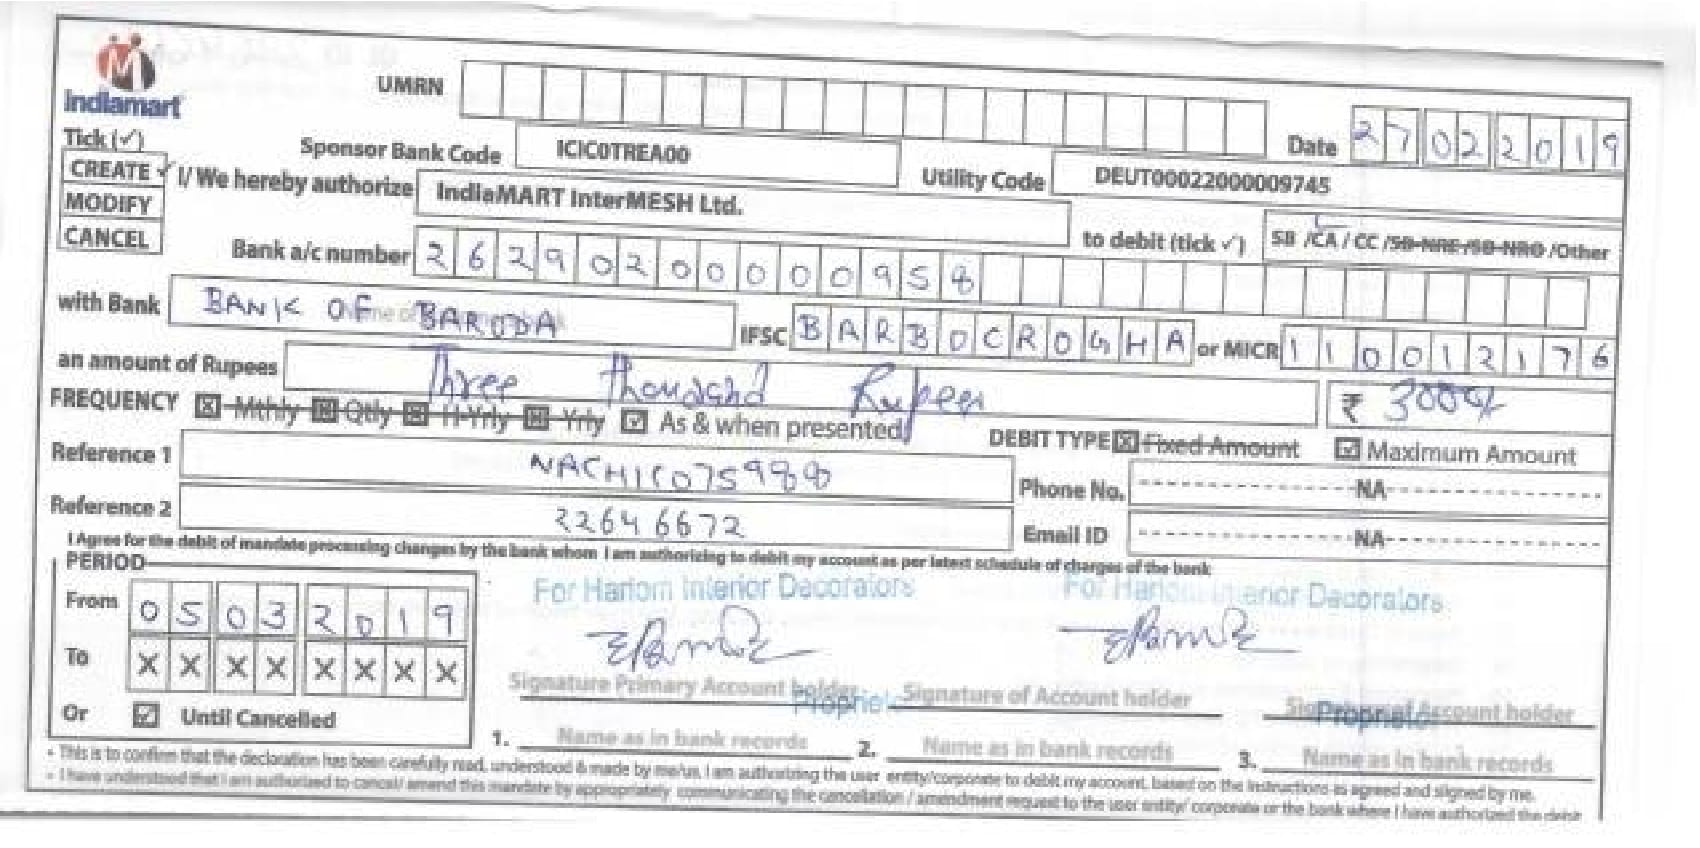 Indiamart
UMRN
Date 27022019
Tick (✓)
CREATE ✓
MODIFY
CANCEL
Sponsor Bank Code ICIC0TREA00
Utility Code DEUT00022000009745
I/ We hereby authorize IndiaMART InterMESH Ltd.
to debit (tick ✓) SB /CA / CC /SB-NRE /SB-NRO /Other
Bank a/c number 26290200000958
with Bank BANK OF BARODA
IFSC BARB0CROGHA or MICR 110012176
an amount of Rupees Three thousand Rupees
₹ 3000/-
FREQUENCY Mthly Qtly H-Yrly Yrly As & when presented
DEBIT TYPE Fixed Amount Maximum Amount
Reference 1 NACHIC075988
Phone No. NA
Reference 2 22646672
Email ID NA
I Agree for the debit of mandate processing charges by the bank whom I am authorizing to debit my account as per latest schedule of charges of the bank
PERIOD
From 05032019
To XXXXXXXX
Or Until Cancelled
For Hariom Interior Decorators
For Hariom Interior Decorators
Signature Primary Account holder
Proprietor
Signature of Account holder
Signature of Account holder
Proprietor
1. Name as in bank records
2. Name as in bank records
3. Name as in bank records
• This is to confirm that the declaration has been carefully read, understood & made by me/us. I am authorizing the user entity/corporate to debit my account, based on the instructions as agreed and signed by me.
• I have understood that I am authorized to cancel/ amend this mandate by appropriately communicating the cancellation / amendment request to the user entity/ corporate or the bank where I have authorized the debit